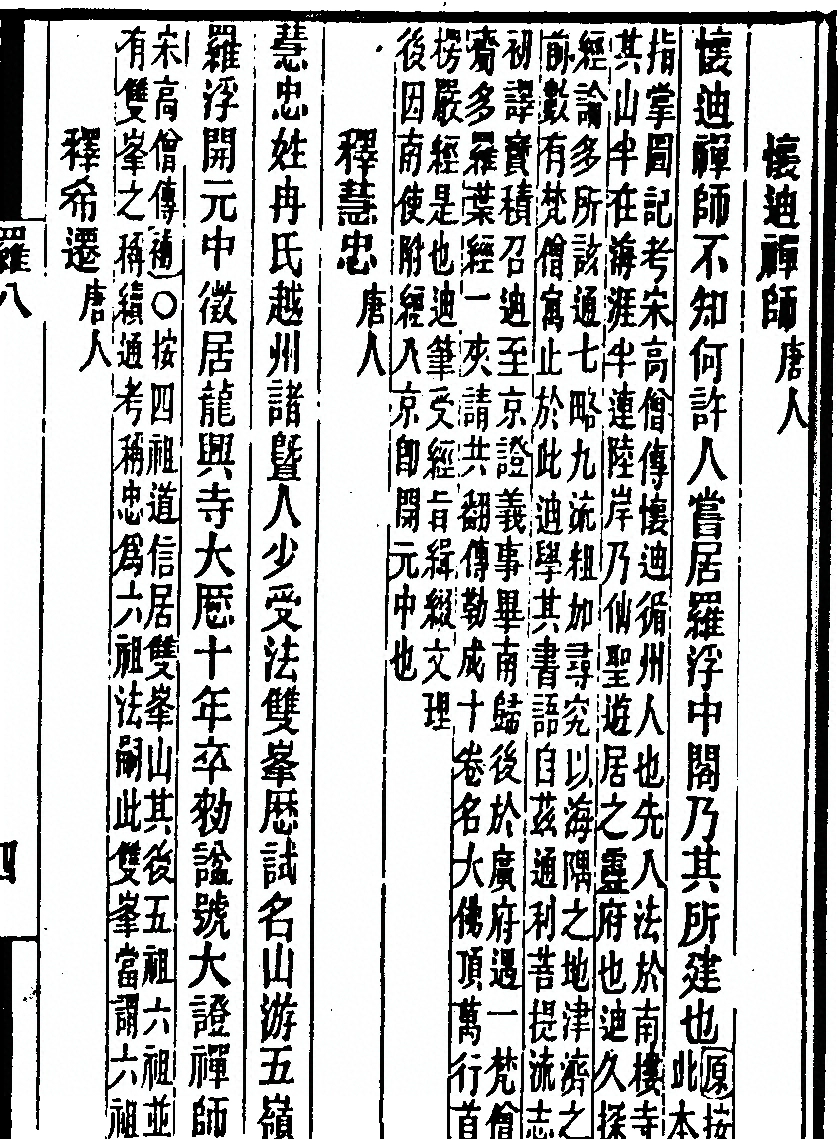 懷迪禪師唐人
懷迪禪師不知何許人嘗居羅浮中閣乃其所建也原按
此本
指掌圖記考宋高僧傳懷迪循州人也先入法於南樓寺
其山半在海涯半連陸岸乃仙聖遊居之靈府也迪久探
經論多所該通七略九流粗加尋究以海隅之地津濟之
前數有梵僧寓止於此迪學其書語自茲通利菩提流志
初譯寶積召迪至京證義事畢南歸後於廣府遇一梵僧
齎多羅葉經一夾請共翻傳勒成十卷名大佛頂萬行首
楞嚴經是也迪筆受經旨緝綴文理
後因南使附經入京卽開元中也
釋慧忠唐人
慧忠姓冉氏越州諸暨人少受法雙峯歷試名山游五嶺
羅浮開元中徵居龍興寺大曆十年卒勑諡號大證禪師
宋高僧傳補○按四祖道信居雙峯山其後五祖六祖並
有雙峯之稱續通考稱忠爲六祖法嗣此雙峯當謂六祖
釋希遷唐人
羅八
四